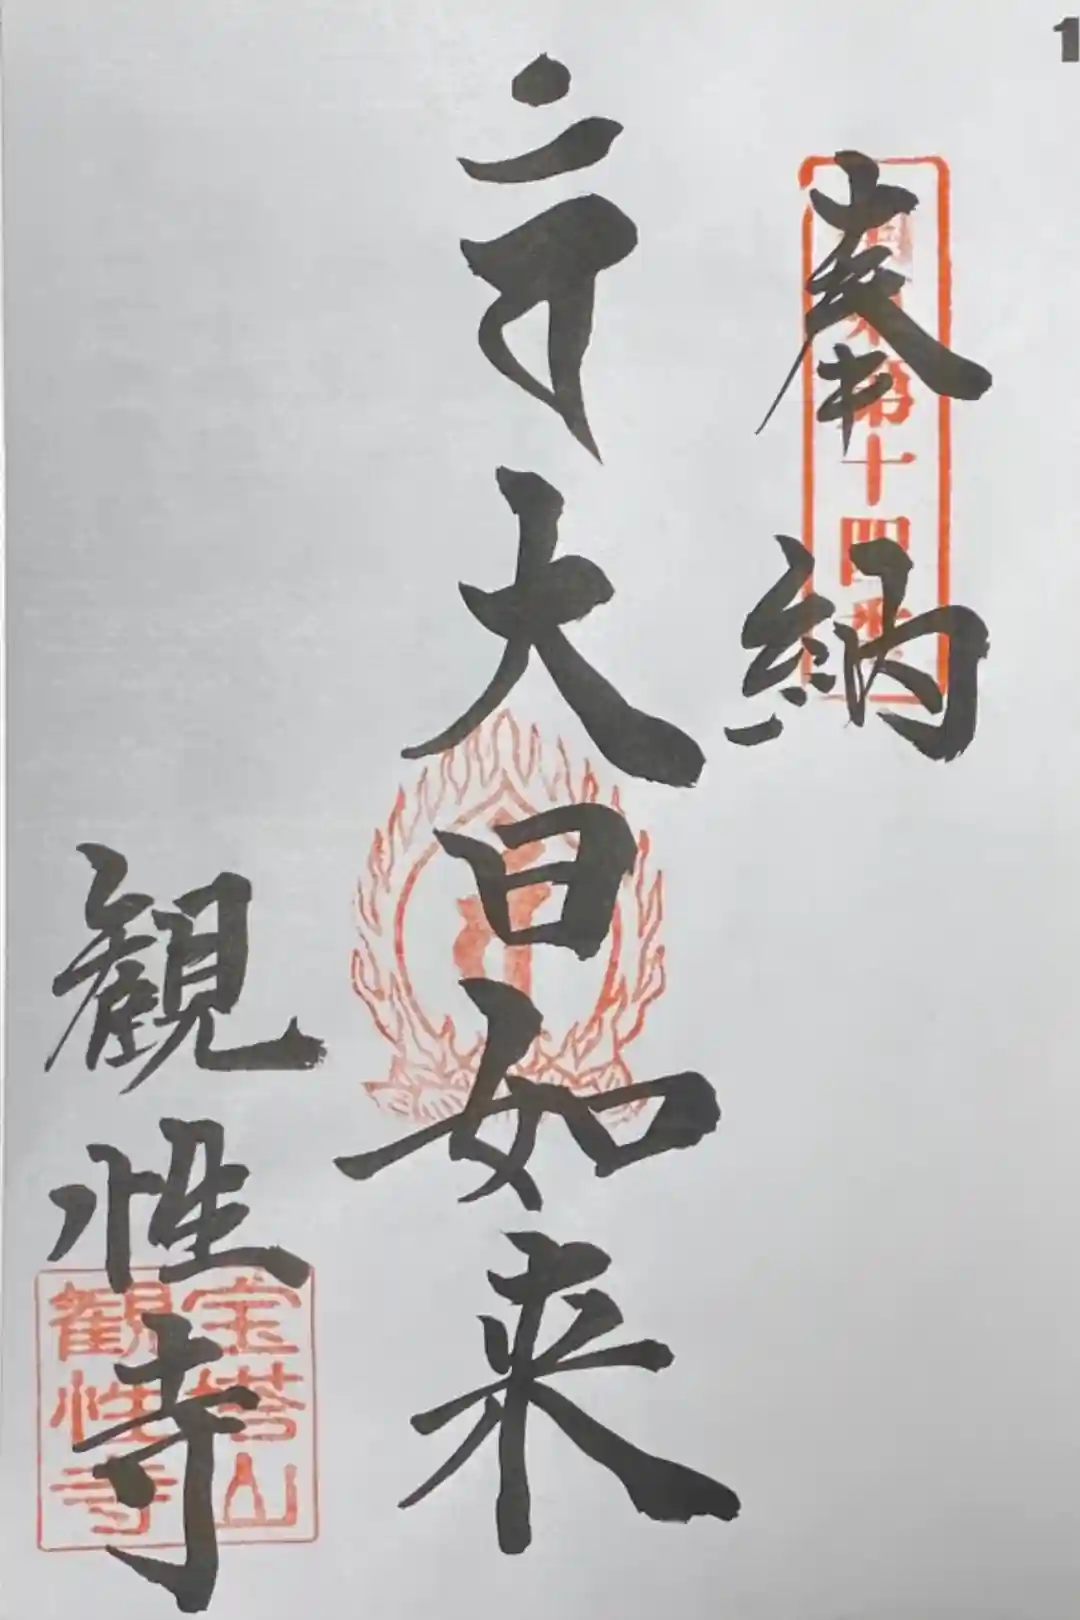 奉納
第十四番
大日如来
観性寺
宝塔山
観性寺